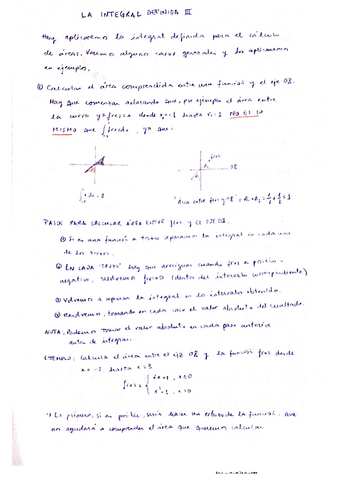 LA INTEGRAL DEFINIDA III
Hoy aplicaremos la integral definida para el cálculo
de áreas. Veremos algunos casos generales y los aplicaremos
en ejemplos.
Calcular el área comprendida entre una función y el eje OX.
Hay que comentar que, por ejemplo el área entre
la curva y=f(x)=x desde x=-1 hasta x=1 NO ES LO
MISMO que ∫ f(x)dx, ya que:
f(x)
OX
∫ x dx = 0
"Área entre f(x) y OX" = A₁+A₂ = 1/2 + 1/2 = 1
PASOS PARA CALCULAR ÁREA ENTRE f(x) y EL EJE OX.
Si es una función a trozos separamos la integral en cada uno
de los trozos.
EN CADA "TROZO" hay que averiguar cuando f(x) es positiva-
negativa, resolvemos f(x)=0 (dentro del intervalo correspondiente)
Volvemos a separar la integral en los intervalos obtenidos.
Resolvemos, tomando en cada caso el valor absoluto del resultado.
NOTA: Podemos tomar el valor absoluto en cada paso anterior
antes de integrar.
EJEMPLO: Calcula el área entre el eje OX y la función f(x) desde
x=-2 hasta x=3
f(x)= { 2x+1, x≤0
x²-1, x>0
Lo primero, si es posible, sería hacer un esbozo de la función, que
nos ayudará a comprender el área que queremos calcular.